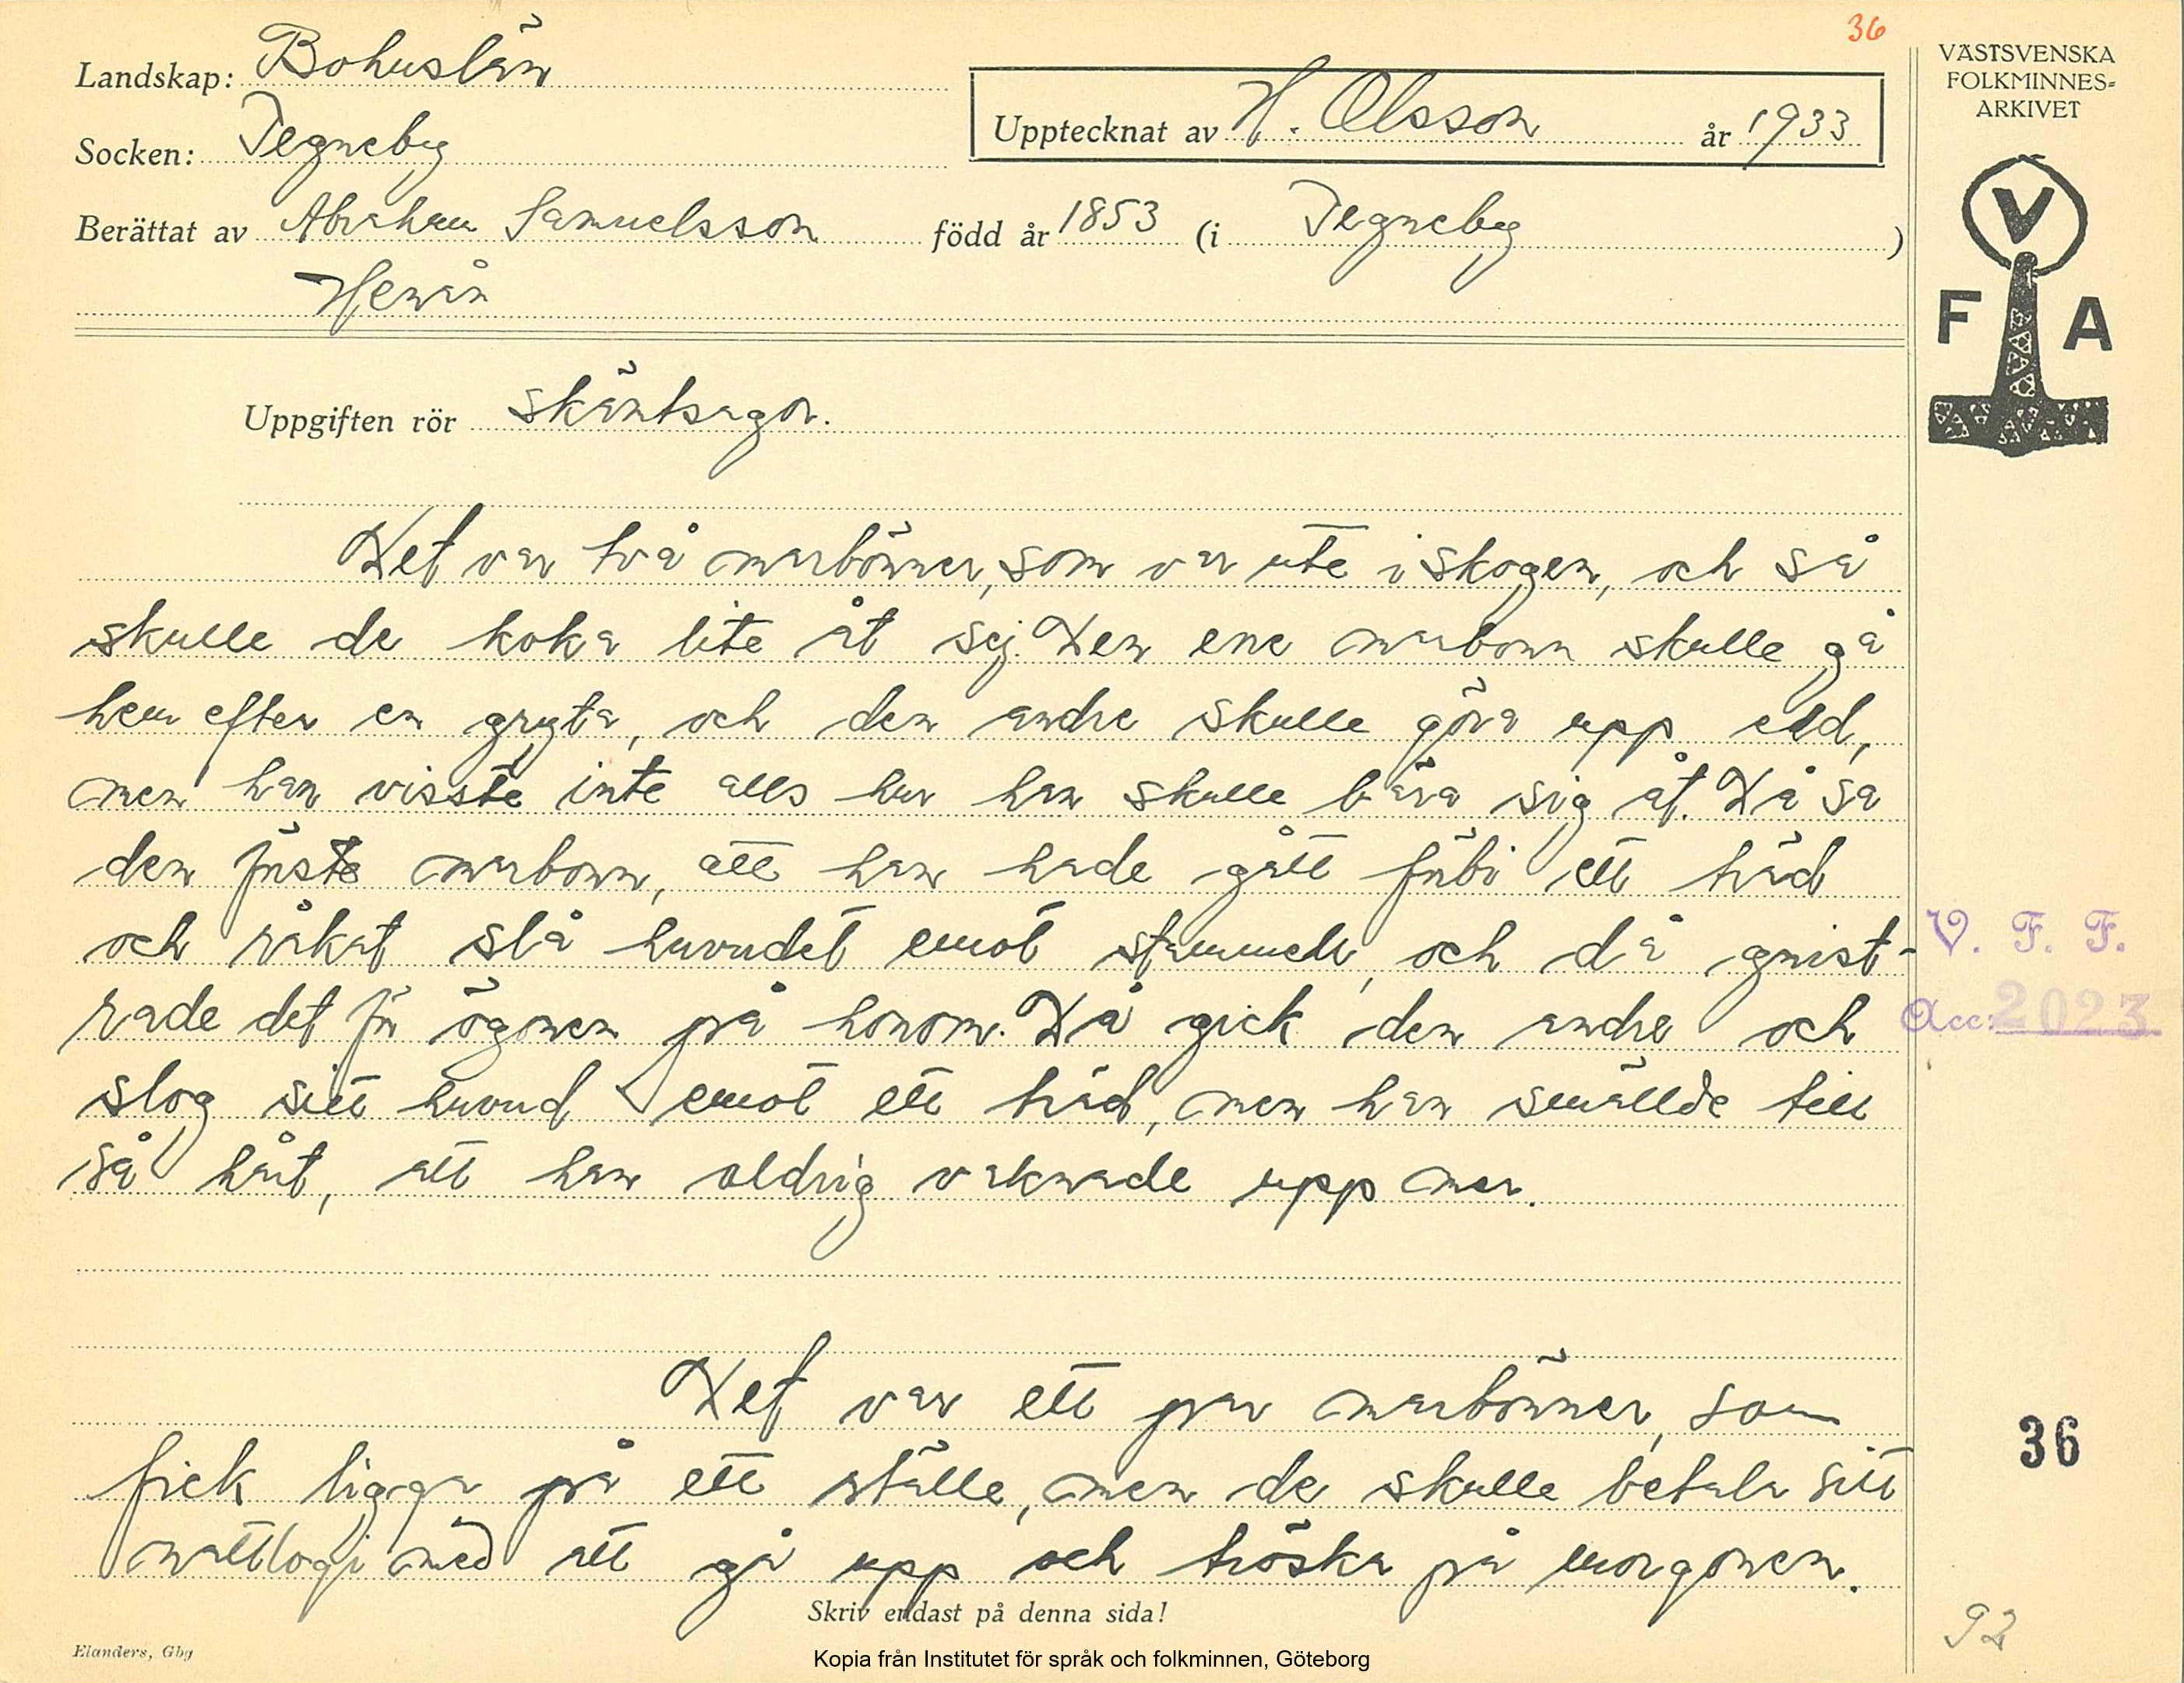 36
Landskap: Bohuslän
Socken: Tegneby
Upptecknat av H. Olsson år 1933
VÄSTSVENSKA
FOLKMINNES-
ARKIVET
Berättat av Abraham Samuelsson född år 1853 (i Tegneby)
Henån
V
F A
Uppgiften rör Skämtsagor.
Det var två marbönner, som var ute i skogen, och så
skulle de koka lite åt sej. Den ene marbonn skulle gå
hem efter en gryta, och den andre skulle göra upp eld,
men han visste inte alls hur han skulle bära sig åt. Då sa
den förste marbonn, att han hade gått förbi ett träd
och råkat slå huvudet emot stammen, och då gnist-
rade det för ögonen på honom. Då gick den andre och
slog sitt huvud emot ett träd, men han smällde till
så hårt, att han aldrig vaknade upp mer.
V. F. F.
Acc: 2023
Det var ett par marbönner, som
fick ligga på ett ställe, men de skulle betala sitt
nattlogi med att gå upp och tröska på morgonen.
36
Skriv endast på denna sida!
92
Elanders, Gbg
Kopia från Institutet för språk och folkminnen, Göteborg